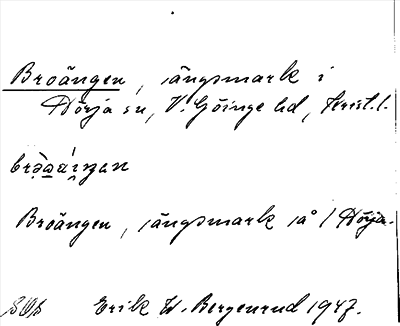 Broängen, ängsmark i
Nörja sn, V. Göinge hd, Krist. l.
Broängen, ängsmark på 1 Nörja.
SOS Erik W. Bergenrud 1947.